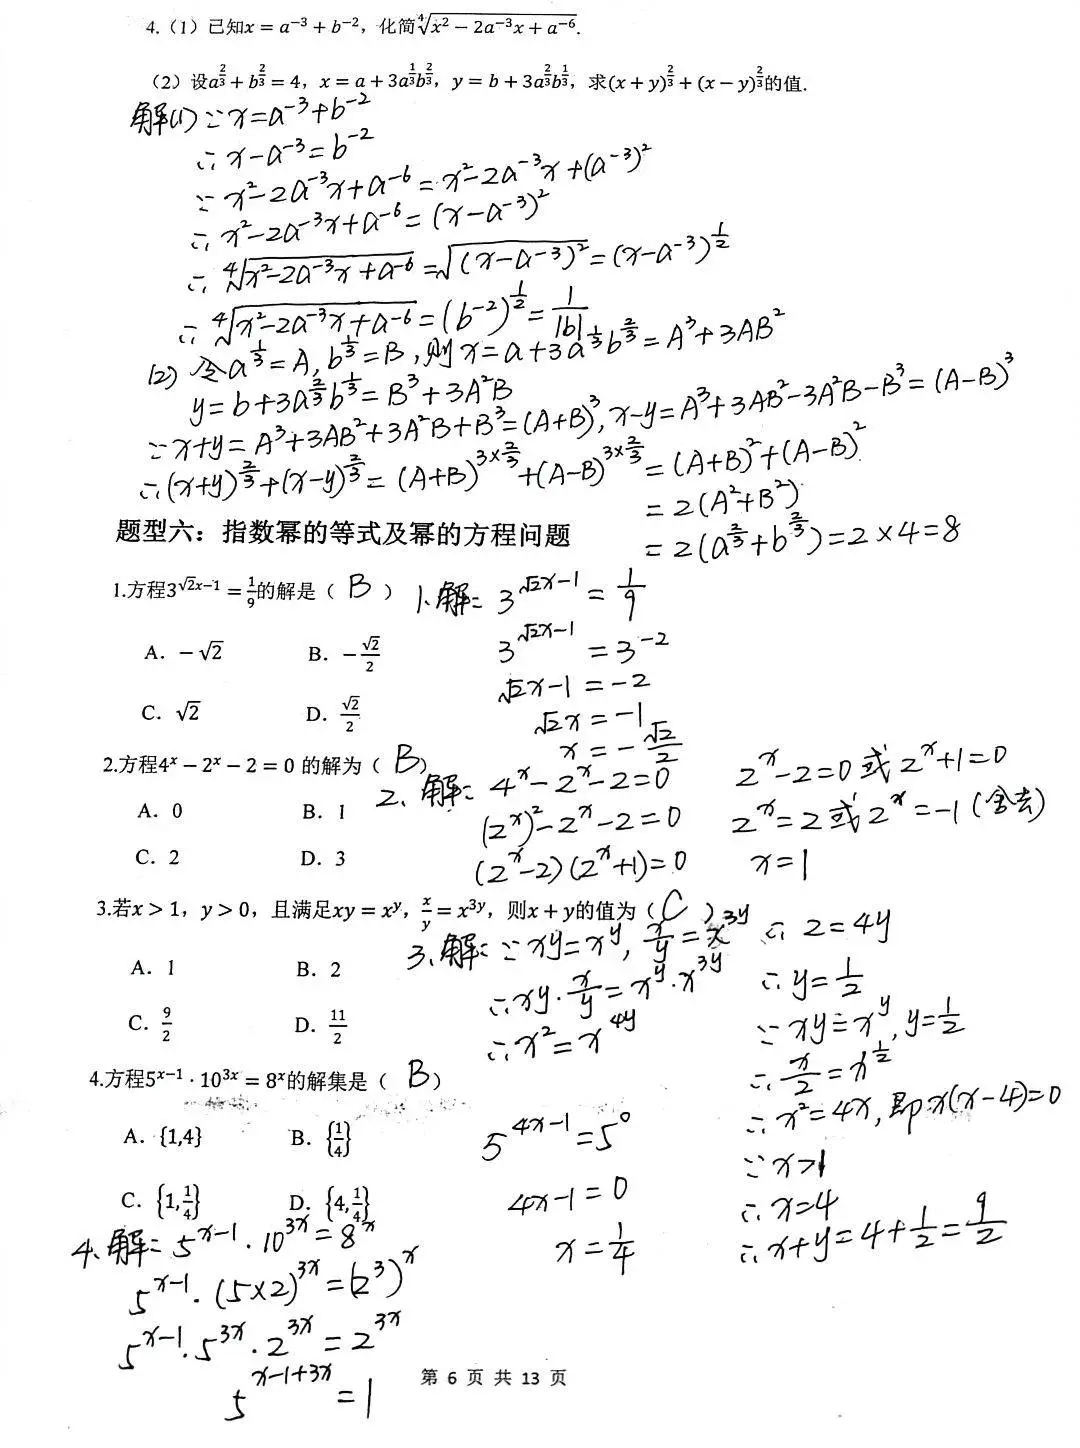 4.（1）已知x = a⁻³ + b⁻²，化简∜(x² − 2a⁻³x + a⁻⁶).
（2）设a^(2/3) + b^(2/3) = 4，x = a + 3a^(1/3)b^(2/3)，y = b + 3a^(2/3)b^(1/3)，求(x + y)^(2/3) + (x − y)^(2/3)的值.
解(1) ∵x=a⁻³+b⁻²
∴x-a⁻³=b⁻²
∵x²-2a⁻³x+a⁻⁶=x²-2a⁻³x+(a⁻³)²
∴x²-2a⁻³x+a⁻⁶=(x-a⁻³)²
∴∜(x²-2a⁻³x+a⁻⁶)=√((x-a⁻³)²)=(x-a⁻³)^(1/2)
∴∜(x²-2a⁻³x+a⁻⁶)=(b⁻²)^(1/2)=1/|b|
(2) 令a^(1/3)=A, b^(1/3)=B,则x=a+3a^(1/3)b^(2/3)=A³+3AB²
y=b+3a^(2/3)b^(1/3)=B³+3A²B
∵x+y=A³+3AB²+3A²B+B³=(A+B)³, x-y=A³+3AB²-3A²B-B³=(A-B)³
∴(x+y)^(2/3)+(x-y)^(2/3)=(A+B)^(3×2/3)+(A-B)^(3×2/3)=(A+B)²+(A-B)²
=2(A²+B²)
=2(a^(2/3)+b^(2/3))=2×4=8
题型六：指数幂的等式及幂的方程问题
1.方程3^(√2x−1) = 1/9的解是（ B ）
A. −√2 B. −√2/2
C. √2 D. √2/2
1、解: 3^(√2x-1)=1/9
3^(√2x-1)=3⁻²
√2x-1=-2
√2x=-1
x=-√2/2
2.方程4ˣ − 2ˣ − 2 = 0 的解为（ B ）
A. 0 B. 1
C. 2 D. 3
2、解: 4ˣ-2ˣ-2=0
(2ˣ)²-2ˣ-2=0
(2ˣ-2)(2ˣ+1)=0
2ˣ-2=0或2ˣ+1=0
2ˣ=2或2ˣ=-1(舍去)
x=1
3.若x > 1，y > 0，且满足xy = xʸ，x/y = x³ʸ，则x + y的值为（ C ）
A. 1 B. 2
C. 9/2 D. 11/2
3、解: ∵xy=xʸ, x/y=x³ʸ
∴xy·x/y=xʸ·x³ʸ
∴x²=x⁴ʸ
∴2=4y
∴y=1/2
∵xy=xʸ, y=1/2
∴x/2=x^(1/2)
∴x²=4x,即x(x-4)=0
∵x>1
∴x=4
∴x+y=4+1/2=9/2
4.方程5ˣ⁻¹ · 10³ˣ = 8ˣ的解集是（ B ）
A. {1,4} B. {1/4}
C. {1,1/4} D. {4,1/4}
4、解: 5ˣ⁻¹·10³ˣ=8ˣ
5ˣ⁻¹·(5×2)³ˣ=(2³)ˣ
5ˣ⁻¹·5³ˣ·2³ˣ=2³ˣ
5ˣ⁻¹⁺³ˣ=1
5⁴ˣ⁻¹=5⁰
4x-1=0
x=1/4
第 6 页 共 13 页